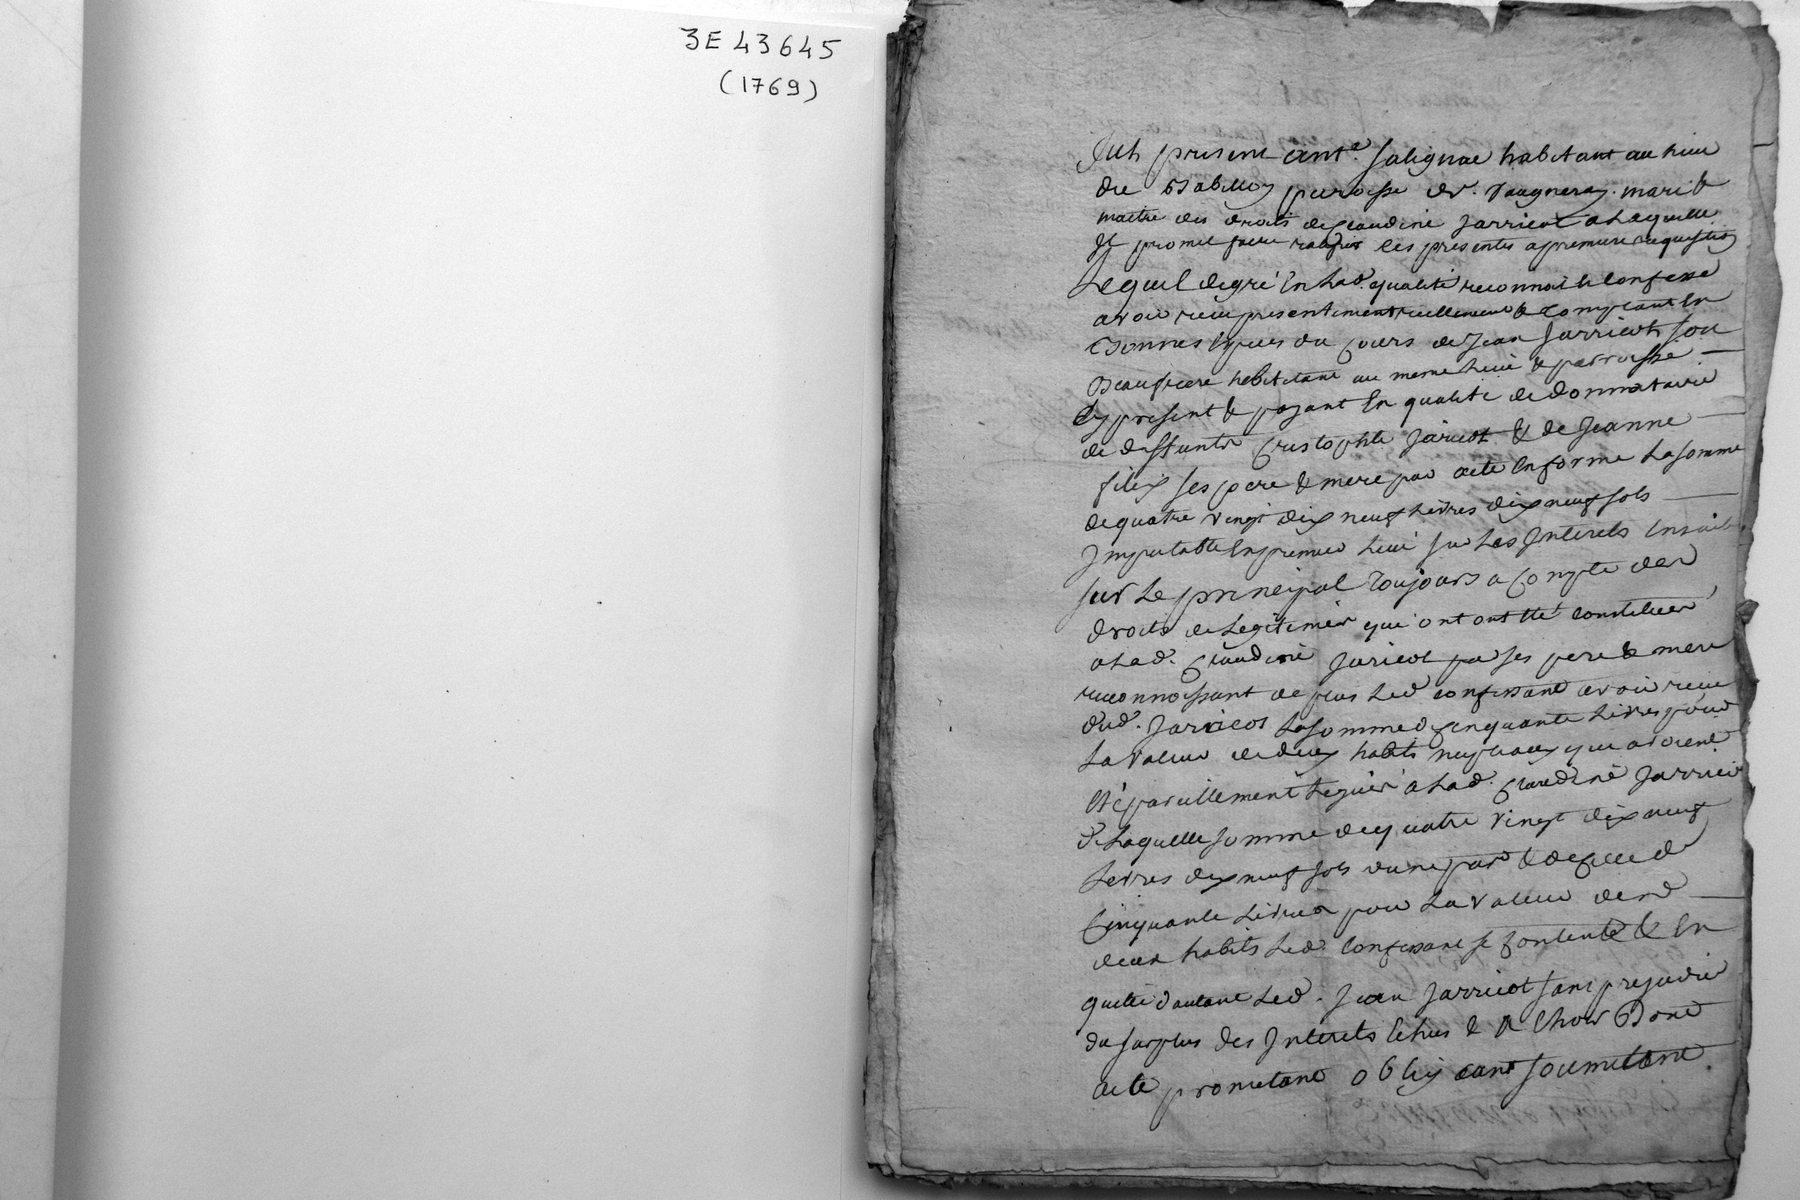 3E 43645
(1769)
fut present ant.e Salignac habitant au lieu
du paroisse de Vaugneray mari &
maitre des droits de Claudine Jarricot a Laquelle
Il promet faire ratifier ces presentes a premiere requisition
Lequel de gré En Lad. qualité reconnoit & Confesse
avoir reçu presentement reellement & Comptant En
Bonnes Especes du Cours de Jean Jarricot Son
Beaufrere habitant au meme Lieu & parroisse
Cy present & payant En qualité de donnataire
de deffunts Cristophle Jaricot & de Jeanne
ses pere & mere par acte En forme La somme
de quatre vingt dix neuf Livres dix neuf sols
Imputable En premier Lieu sur Les Interets Ensuite
sur Le principal Toujours a Compte des
droits de Legitimes qui ont été constitués
a Lad. Claudine Jaricot par ses pere & mere
reconnoissant de plus Led confessant avoir reçu
dud. Jarricot La somme de Cinquante Livres pour
La valeur de deux habits nuptiaux qui avoient
Eté pareillement Legués a Lad. Claudine Jarricot
de Laquelle somme de quatre vingt dix neuf
Livres dix neuf sols d'une part & de celle de
Cinquante Livres pour La valeur desd
deux habits Led. Confessant se Contente & En
quitte d'autant Led. Jean Jarricot sans prejudice
du surplus des Interets Echus & a Echoir Dont
acte prometant obligeant soumetant